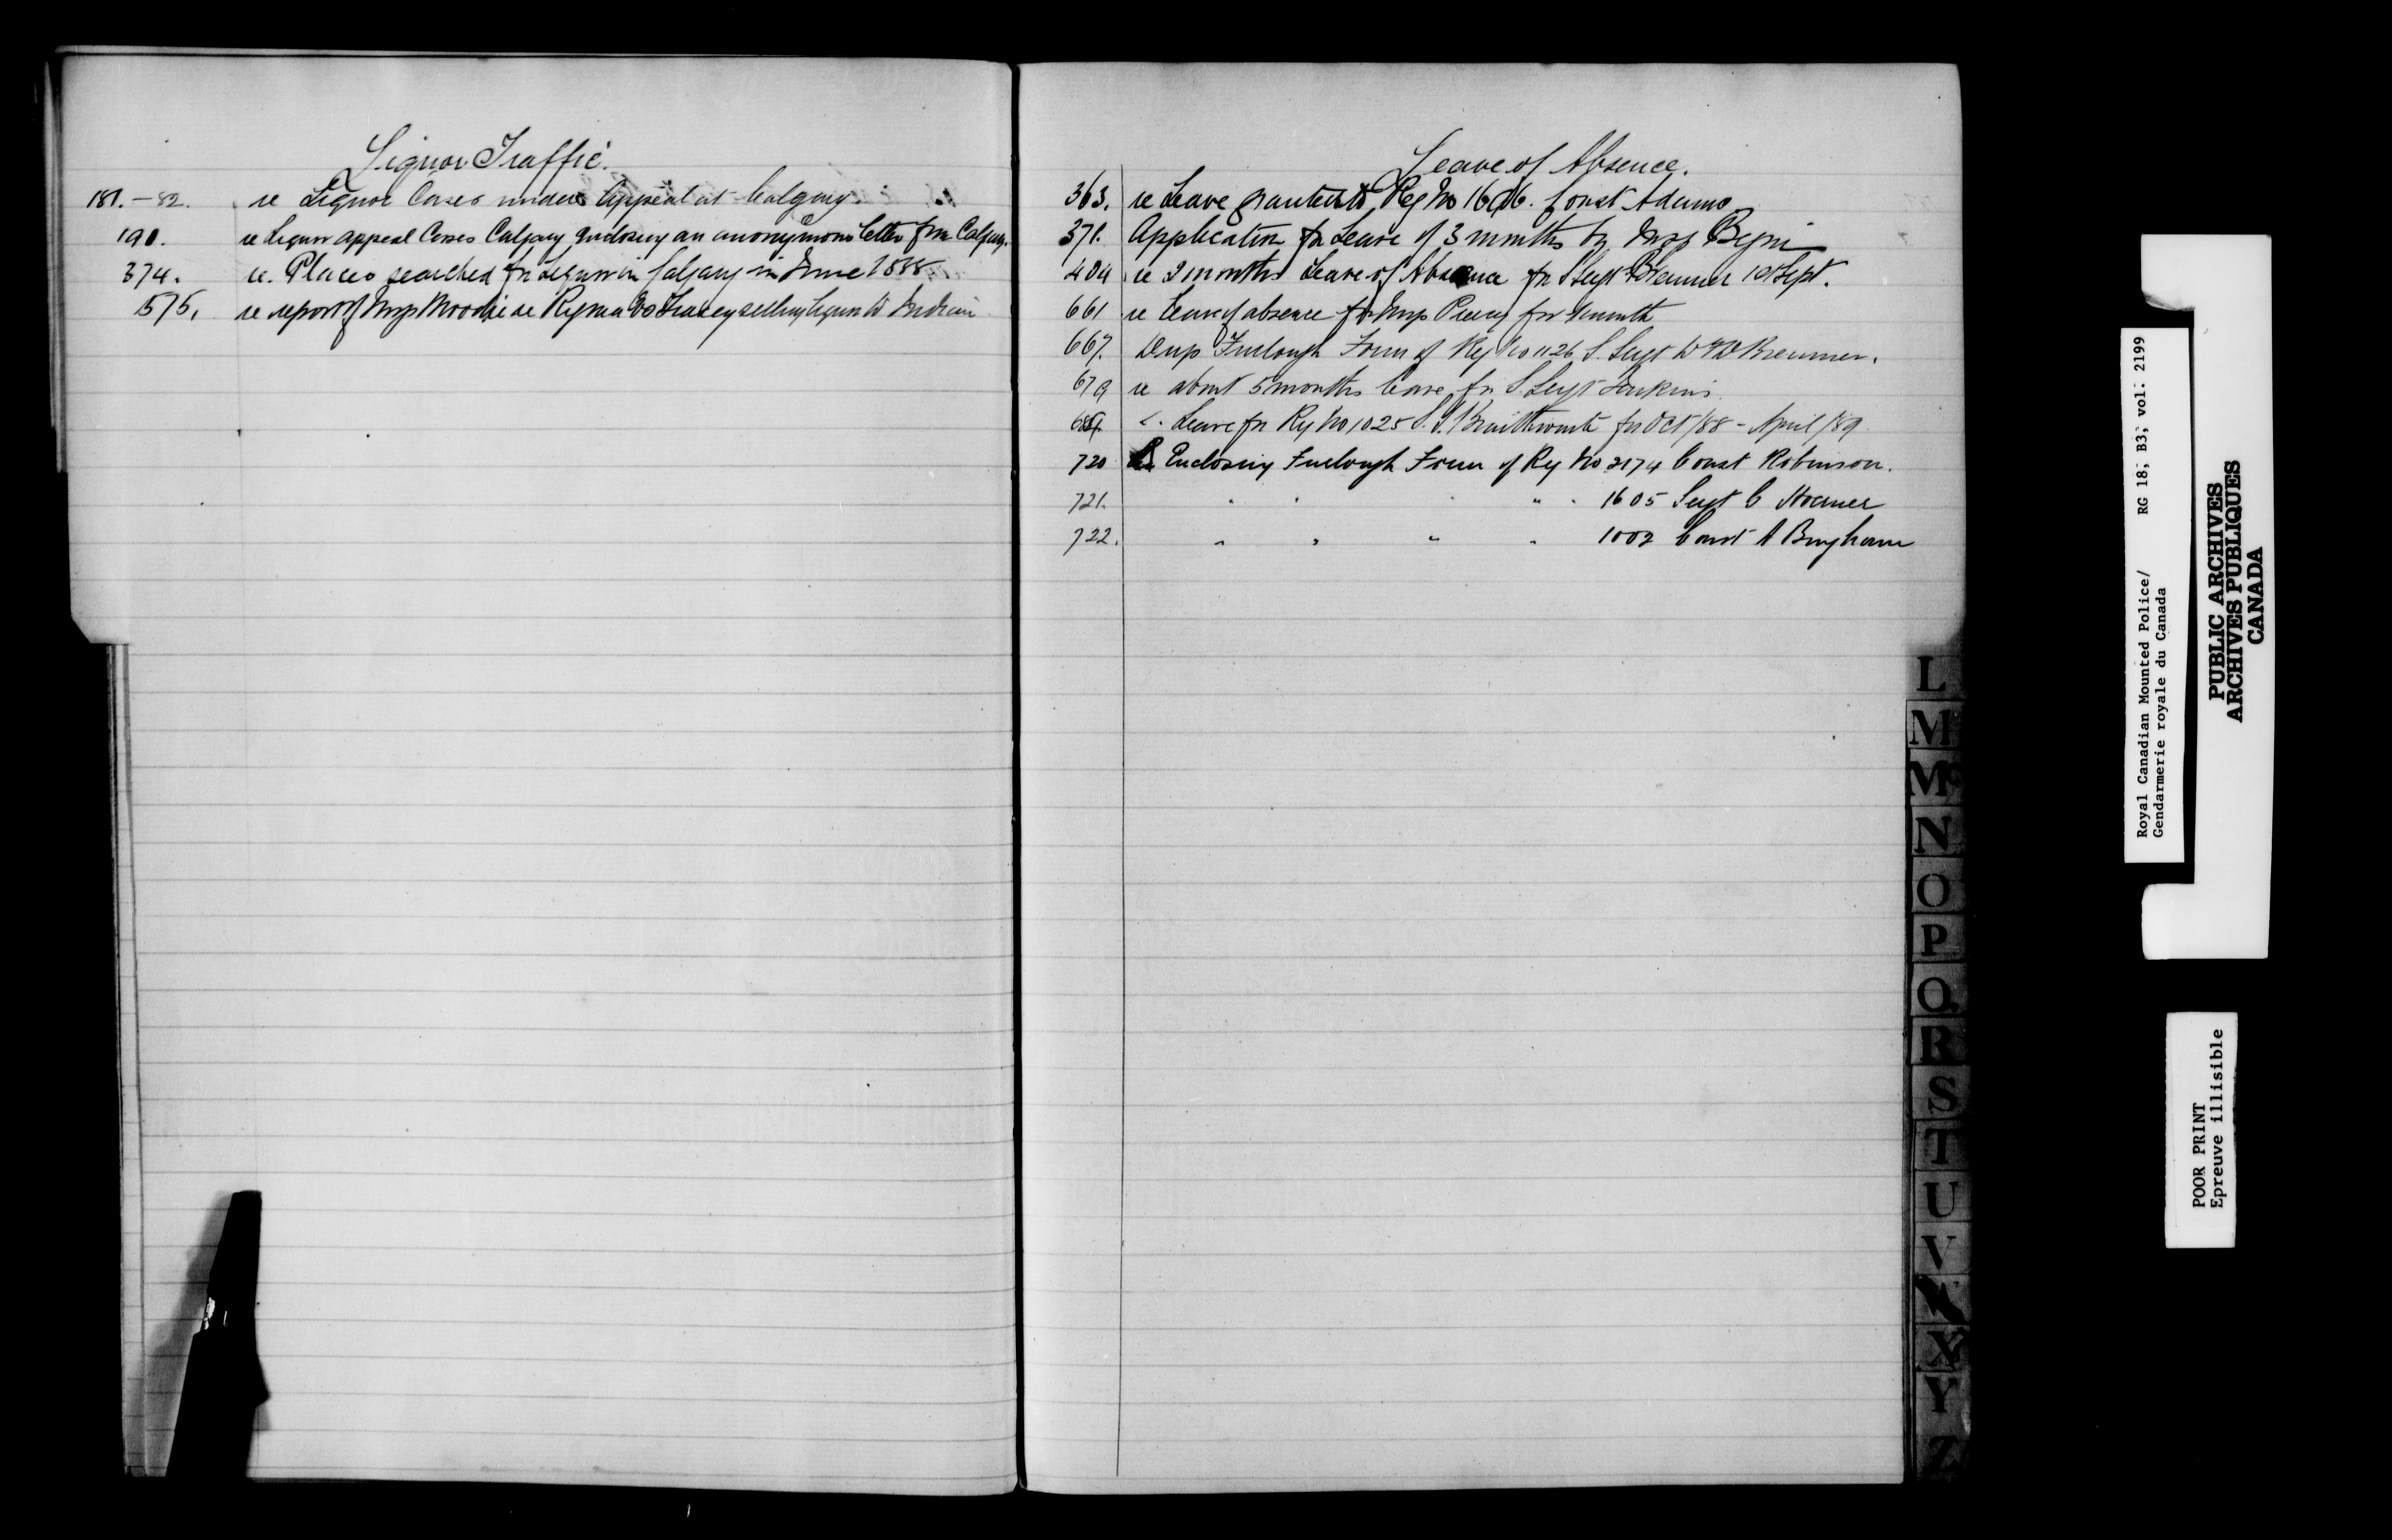 Liquor Traffic.
181.-82. re Liquor Cases under Appeal at Calgary
190. re Liquor appeal Cases Calgary Enclosing an anonymous letter from Calgary.
374. re. Places searched for Liquor in Calgary in June 1888
575. re report of Insp Moodie re Regina vs selling liquor to Indian
Leave of Absence.
363. re Leave granted to Reg No 1606. Const Adams
371. Application for Leave of 3 months by Insp Begin
404 re 3 months Leave of Absence for S Sergt Bremner 1st Sept.
661 re Leave of absence for Insp for 1 month
667. Dup Furlough Form of Reg No 1126 S. Sergt Bremner.
679 re about 5 months leave for S. Sergt Jenkins
Leave for Reg No 1025 S. S. Braithwaite for Oct/88 - April/89
720 Enclosing Furlough Form of Reg No 2174 Const Robinson.
721. " " " " 1605 Sergt C
722. " " " " 1002 Const A Bingham
L
M
Mc
N
O
P
Q
R
S
T
U
V
W
X
Y
Z
Royal Canadian Mounted Police/ RG 18; B3; vol: 2199
Gendarmerie royale du Canada
PUBLIC ARCHIVES
ARCHIVES PUBLIQUES
CANADA
POOR PRINT
Epreuve illisible